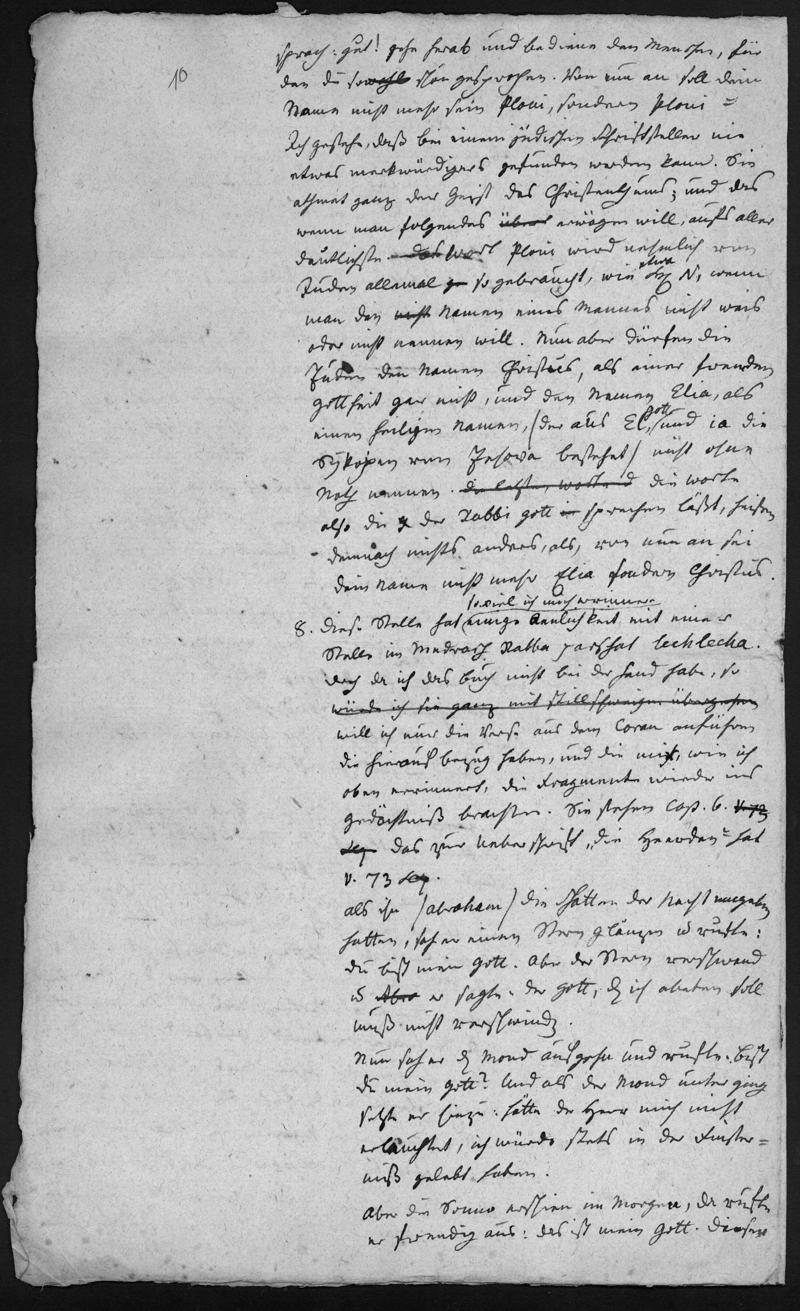 10
sprach: gut! gehe herab und bediene den Menschen, für
den du sowohl schön gesprochen. Von nun an soll dein
Name nicht mehr sein Ploni, sondern Ploni =
Ich gestehe, daß bei einem jüdischen Schriftsteller nie
etwas merkwürdigers gefunden werden kann. Sie
athmet ganz den Geist des Christenthums; und das
wenn man folgendes über erwägen will, aufs aller
deutlichste. das Wort Ploni wird nehmlich von
Juden allemal so gebraucht, wie etwa N, wenn
man den nicht Namen eines Mannes nicht weis
oder nicht nennen will. Nun aber dürfen die
Juden den Namen Christus, als einer fremden
Gottheit gar nicht, und den Namen Elia, als
einen heiligen Namen, (der aus El, Gott und ia die
Sykopen von Jehova bestehet) nicht ohne
Noth nennen. die letzten, worte die worte
also die der Rabbi Gott sprechen läßt, heißen
demnach nichts anders, als, von nun an sei
dein Name nicht mehr Elia sondern Christus.
8. diese Stelle hat soviel ich mich errinnere einige Aenlichkeit mit einer
Stelle im Medrasch Rabba parschat lechlecha.
doch da ich das buch nicht bei der hand habe, so
würde ich sie ganz mit stillschweigen übergehen
will ich nur die Verse aus dem Coran anführen
die hierauf bezug haben, und die mir, wie ich
oben errinnert, die Fragmente wieder ins
gedächtniß brachten. Sie stehen Cap. 6. v. 73
seq das zur Ueberschrift „die Heerden" hat
v. 73 seq.
als ihn (Abraham) die Schatten der Nacht umgeben
hatten, sah er einen Stern glänzen u rufte:
du bist mein Gott. Aber der Stern verschwand
u Aber er sagte. der Gott, den ich anbeten soll
muß nicht verschwinden.
Nun sah er den Mond aufgehn und rufte. bist
du mein Gott? Und als der Mond unter ging
setzte er hinzu: hätte der Herr mich nicht
erleuchtet, ich würde stets in der Finster=
niß gelebt haben.
Aber die Sonne erschien im Morgen, da rufte
er freudig aus: das ist mein Gott. dieser